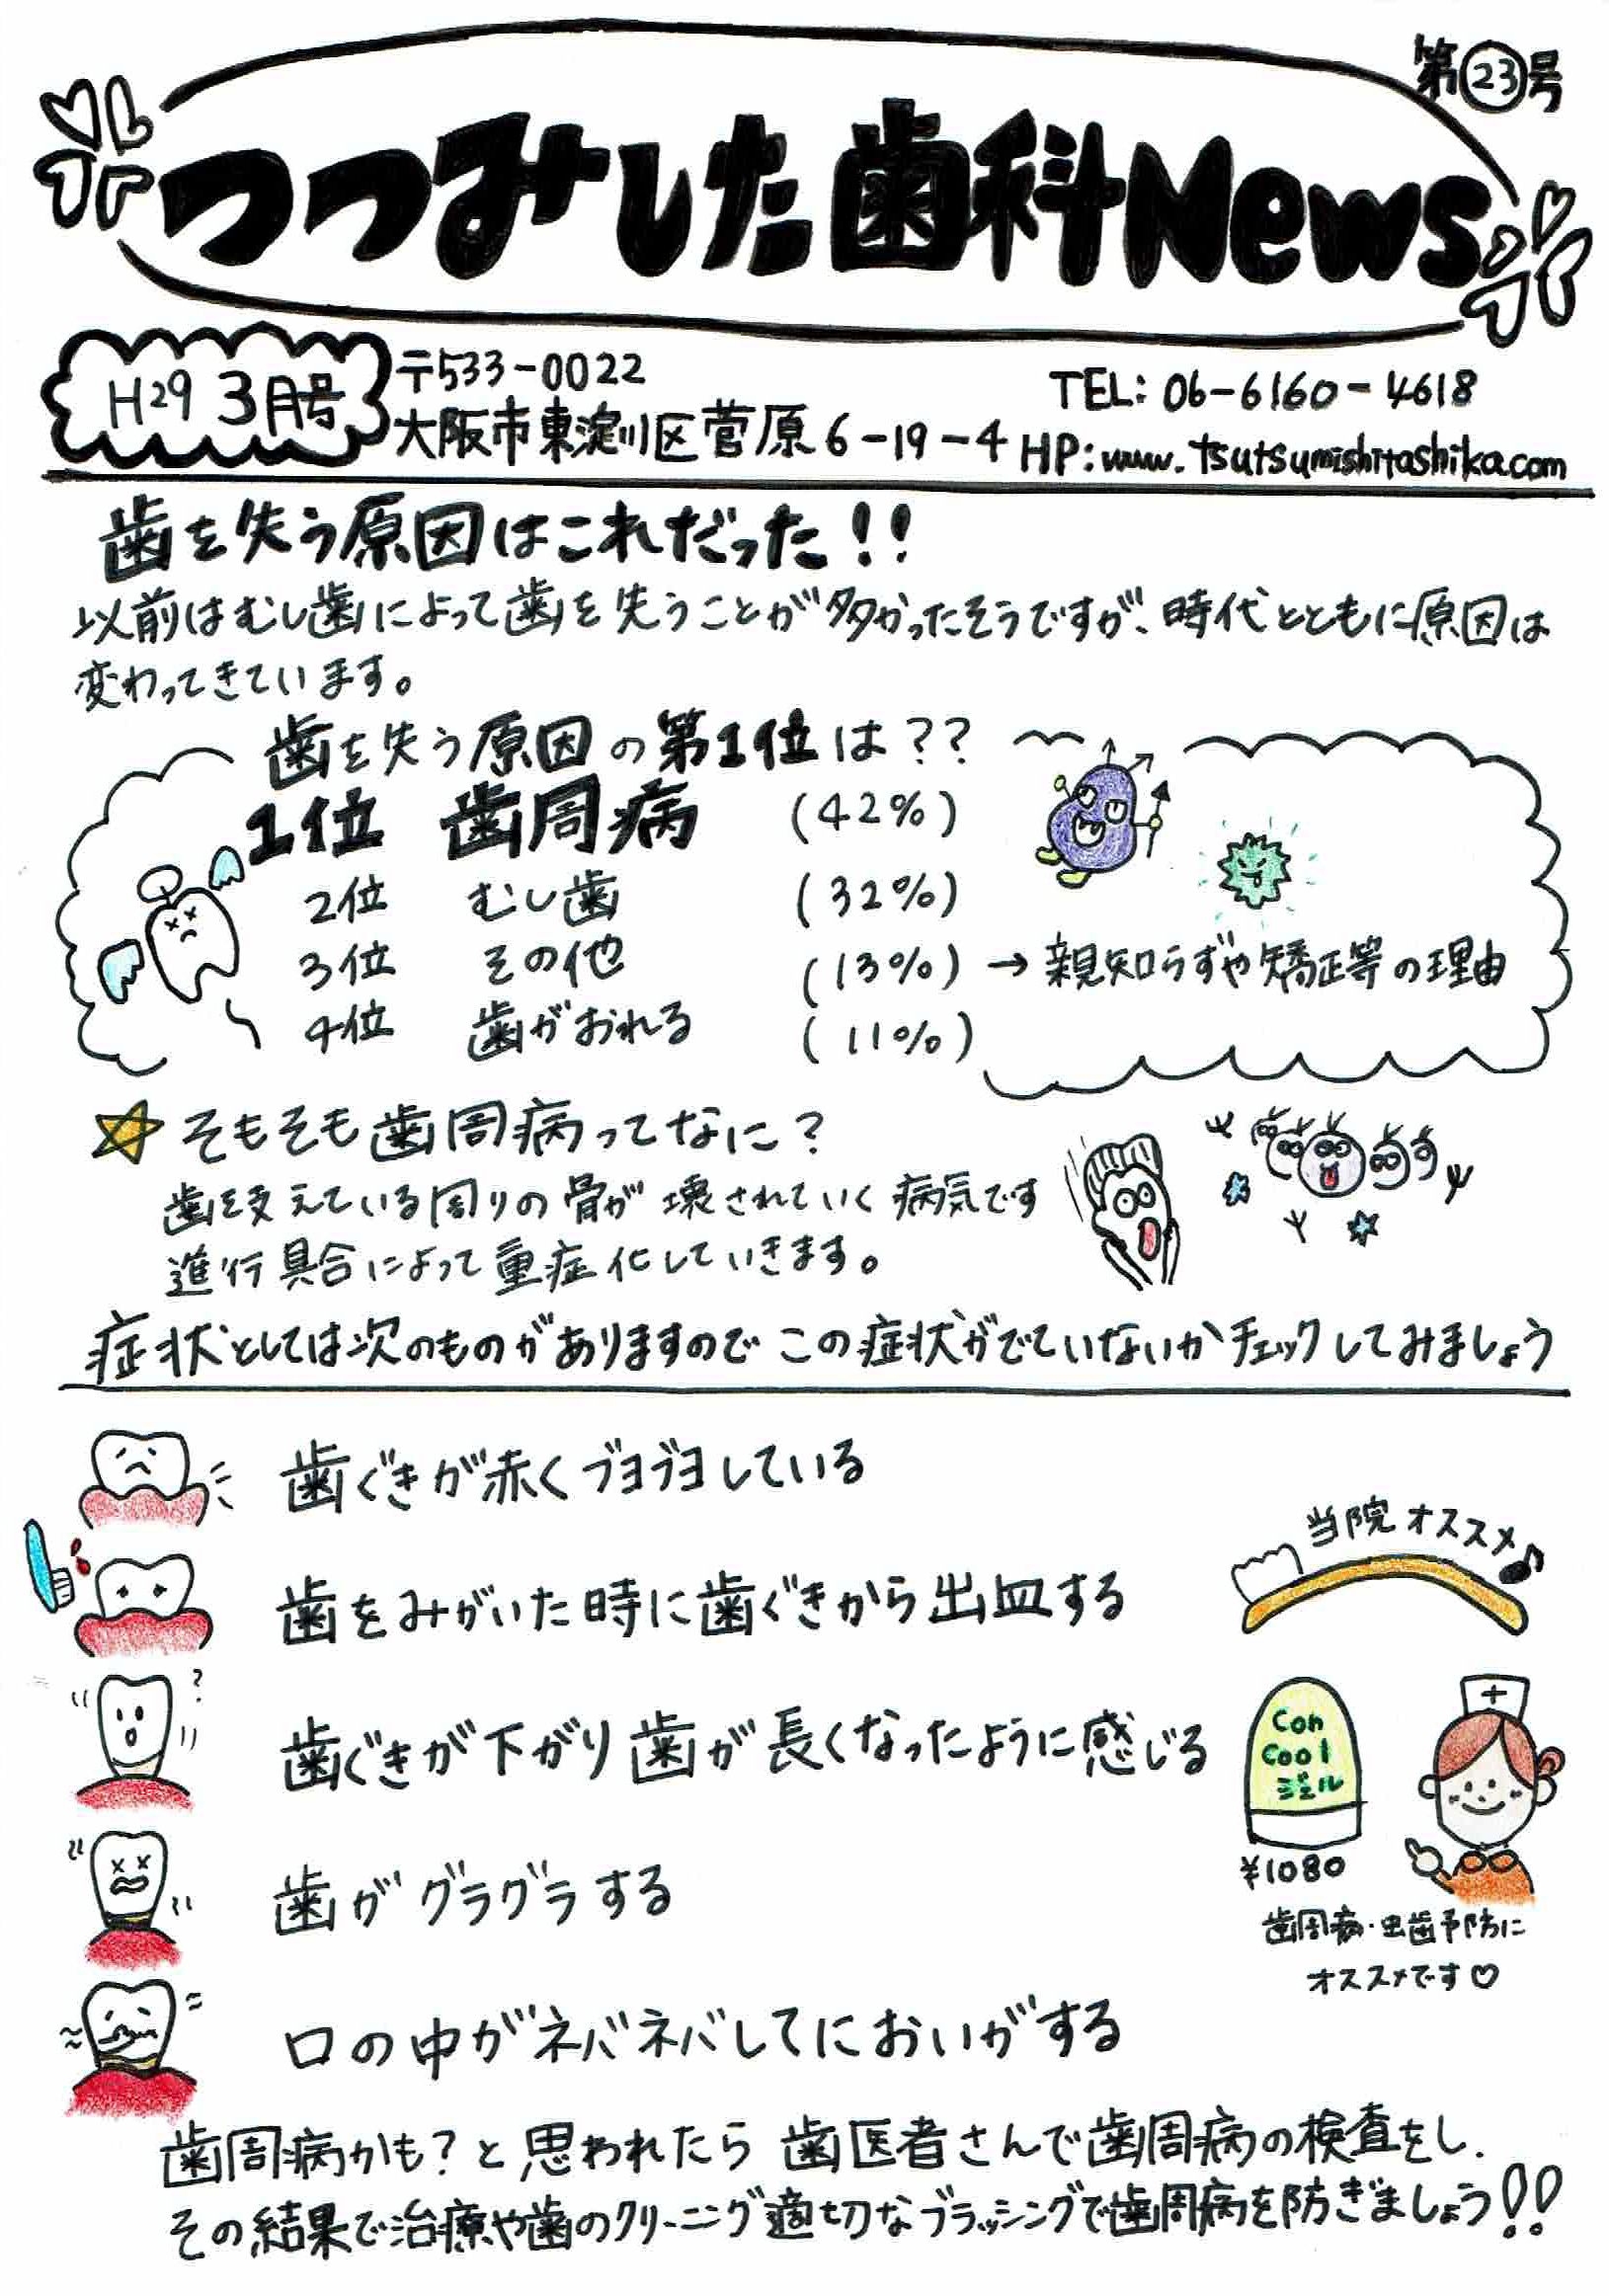 第㉓号
つつみした歯科News
H29 3月号
〒533-0022
大阪市東淀川区菅原6-19-4
TEL:06-6160-4618
HP:www.tsutsumishitashika.com
歯を失う原因はこれだった!!
以前はむし歯によって歯を失うことが多かったそうですが、時代とともに原因は
変わってきています。
歯を失う原因の第1位は??
1位 歯周病 (42%)
2位 むし歯 (32%)
3位 その他 (13%) → 親知らずや矯正等の理由
4位 歯がおれる (11%)
☆そもそも歯周病ってなに?
歯を支えている周りの骨が壊されていく病気です
進行具合によって重症化していきます。
症状としては次のものがありますのでこの症状がでていないかチェックしてみましょう
歯ぐきが赤くブヨブヨしている
歯をみがいた時に歯ぐきから出血する
歯ぐきが下がり歯が長くなったように感じる
歯がグラグラする
口の中がネバネバしてにおいがする
当院オススメ♪
Con
Cool
ジェル
¥1080
歯周病・虫歯予防に
オススメです♡
歯周病かも?と思われたら歯医者さんで歯周病の検査をし、
その結果で治療や歯のクリーニング適切なブラッシングで歯周病を防ぎましょう!!